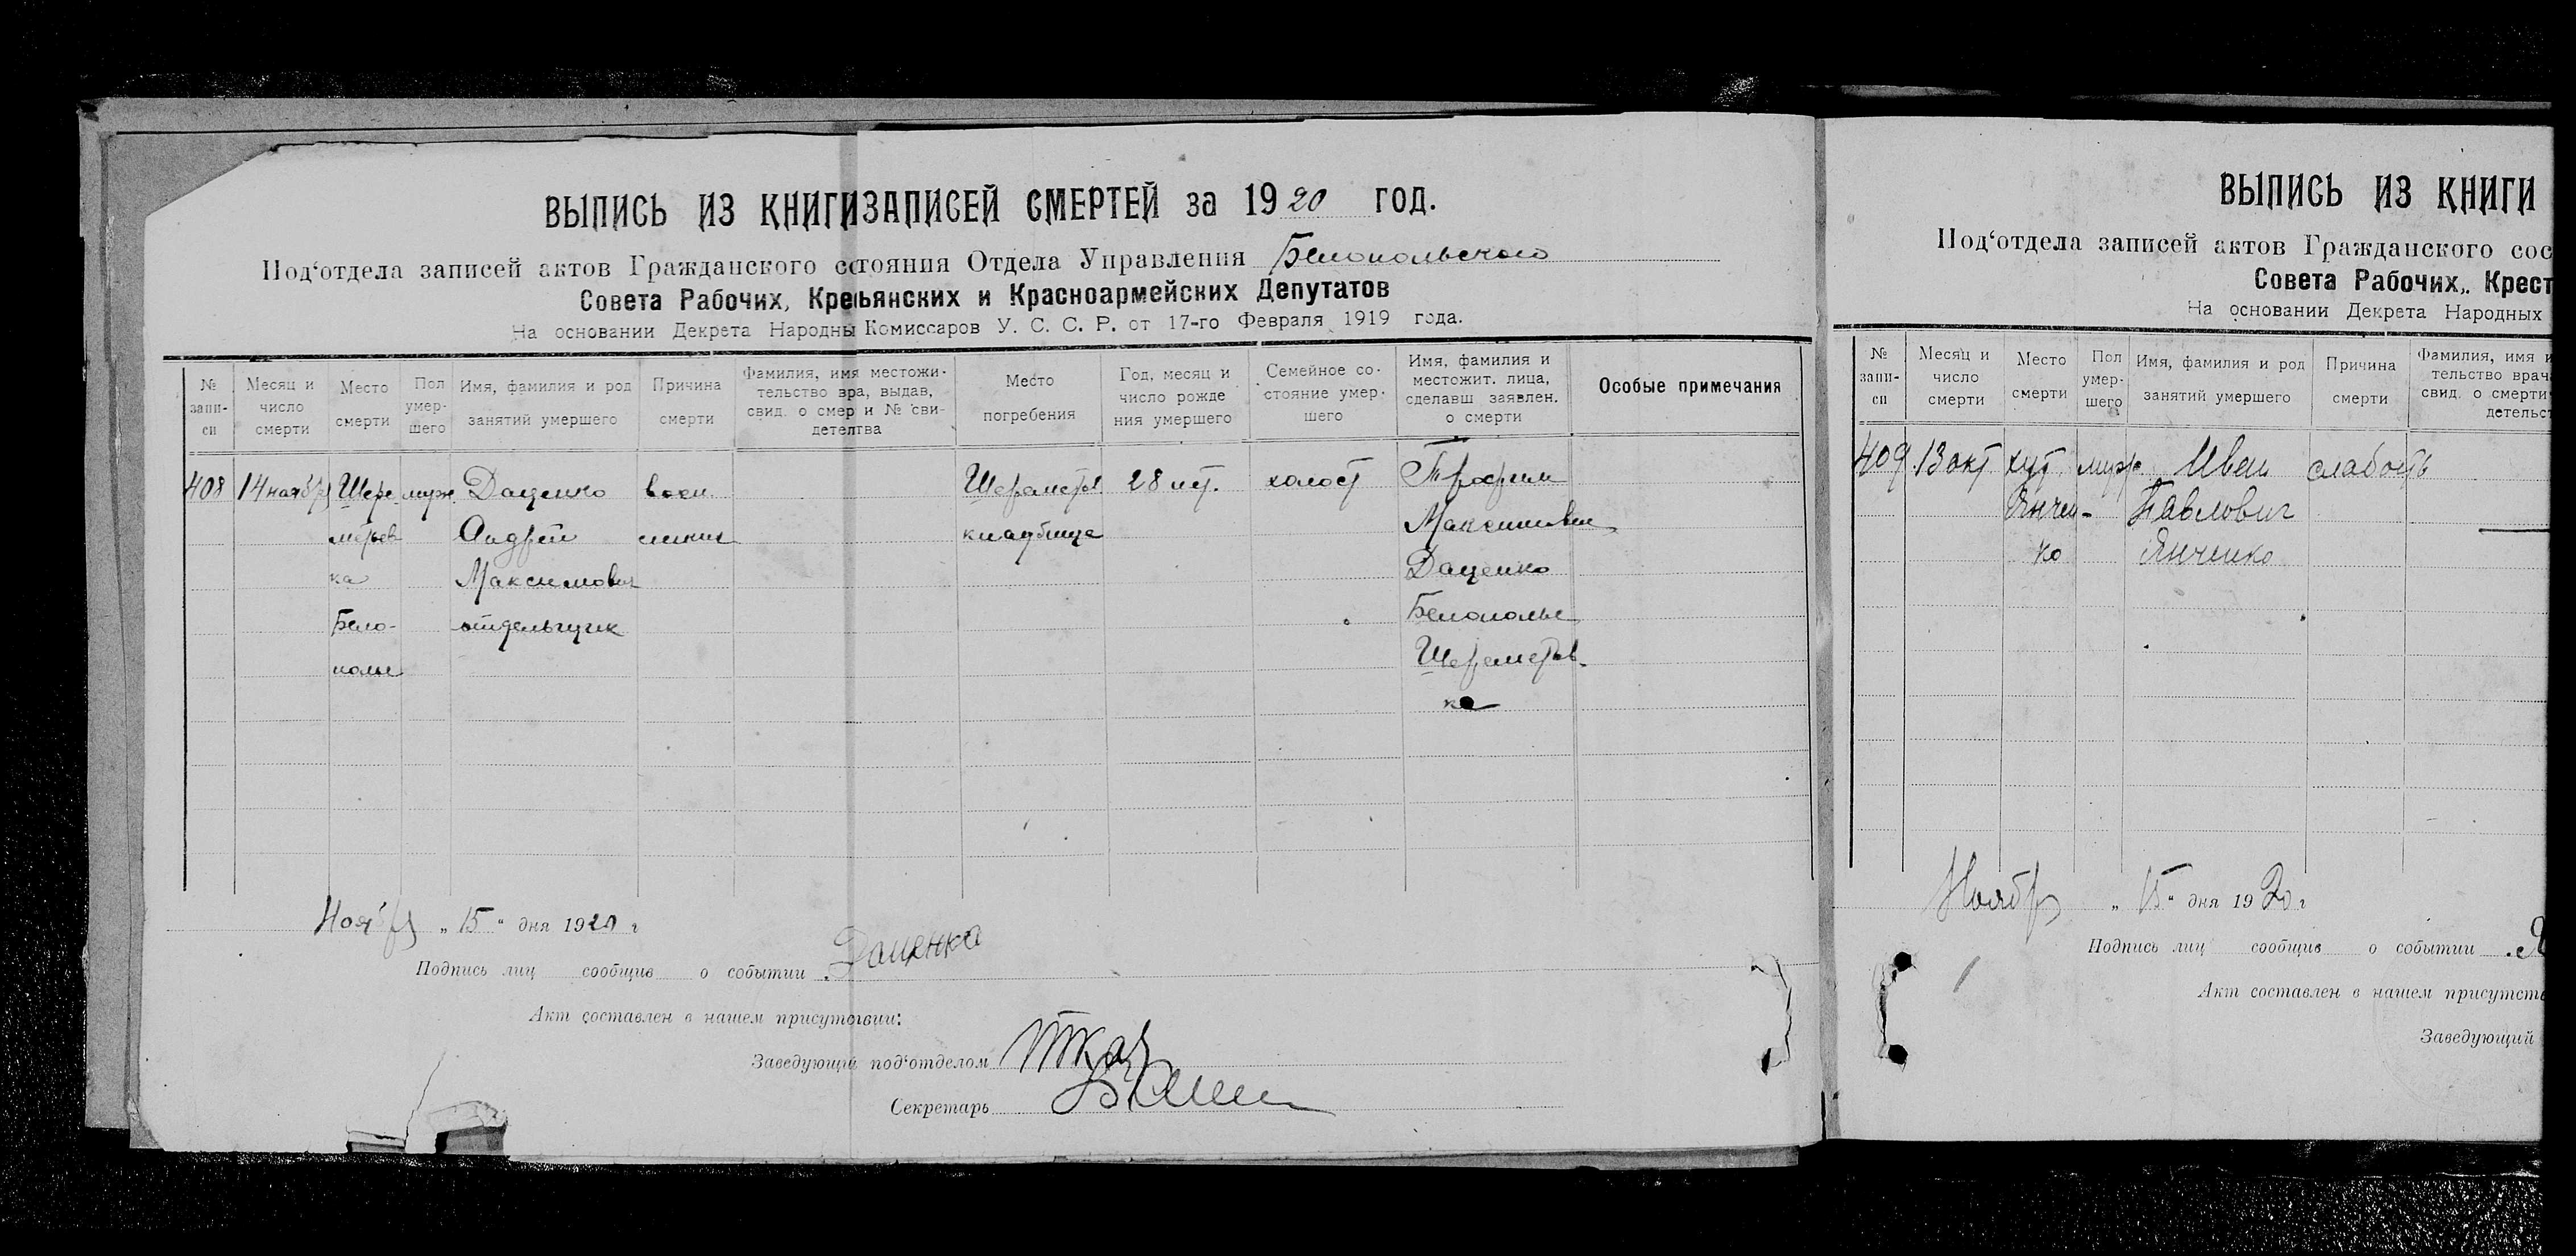 ВЫПИСЬ ИЗ КНИГИ ЗАПИСЕЙ СМЕРТЕЙ за 1920 ГОД.
Под‘отдела записей актов Гражданского состояния Отдела Управления Белопольского
Совета Рабочих, Кресьянских и Красноармейских Депутатов
На основании Декрета Народны Комиссаров У. С. С. Р. от 17-го Февраля 1919 года.
№ запи-си
Месяц и число смерти
Место смерти
Пол умер-шего
Имя, фамилия и род занятий умершего
Причина смерти
Фамилия, имя местожи-тельство вра, выдав, свид. о смер и № сви-детелтва
Место погребения
Год, месяц и число рожде ния умершего
Семейное со-стояние умер-шего
Имя, фамилия и местожит. лица, сделавш заявлен. о смерти
Особые примечания
408 14 ноября Шере муж Даценко восп. Шереметев 28 лет. холост Трофим
метьев Андрей кладбище Максимович
ка Максимович Даценко
Бело- Белополье
полье Шереметьев-
ка
Ноября „ 15 “ дня 1920 г
Подпись лиц сообщив о событии Даценко
Акт составлен в нашем присутствии:
Заведующий под‘отделом Ткач
Секретарь
ВЫПИСЬ ИЗ КНИГИ
Под‘отдела записей актов Гражданского сос
Совета Рабочих,. Крест
На основании Декрета Народных
№ запи-си
Месяц и число смерти
Место смерти
Пол умер-шего
Имя, фамилия и род занятий умершего
Причина смерти
Фамилия, имя и тельство врач свид. о смерти детельст
409 13 окт хут муж Иван слабость
Янчен- Павлович
ко Янченко
Ноября „ 15 “ дня 1920 г
Подпись лиц сообщив о событии
Акт составлен в нашем присутств
Заведующий